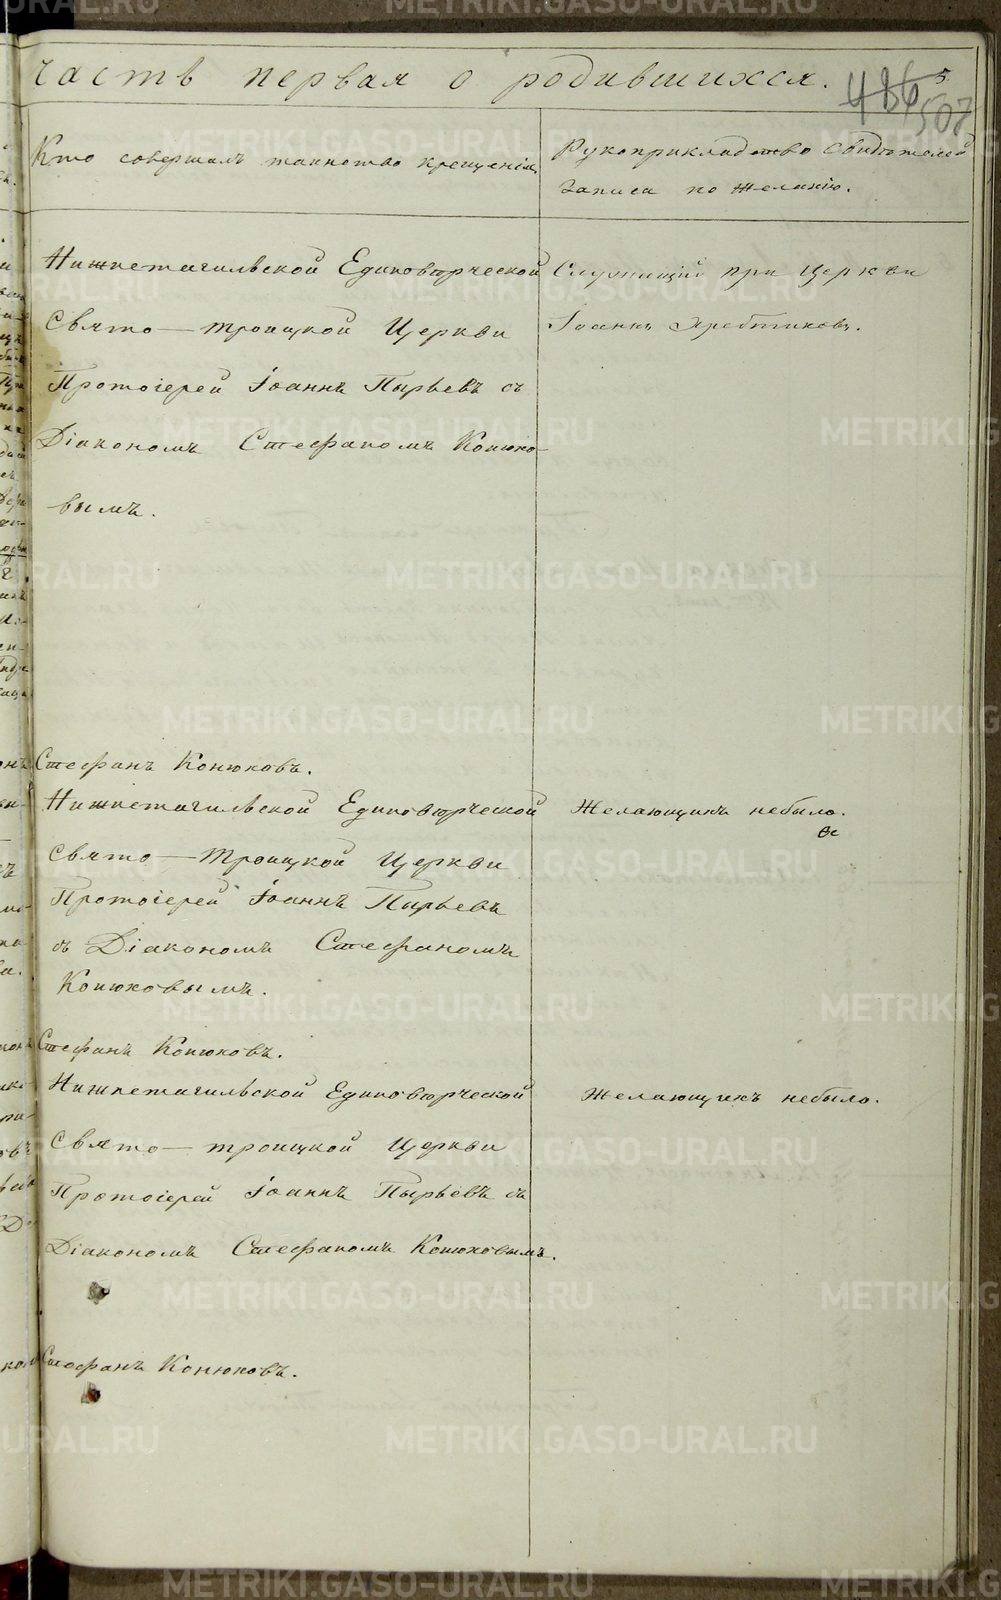 часть первая о родившихся.
5
486
507
Кто совершалъ таинство крещенія,
Рукоприкладство свидѣтелей
записи по желанію.
Нижнетагильской Единовѣрческой
Свято—троицкой Церкви
Протоіерей Іоаннъ Пырьевъ съ
Діакономъ Стефаномъ Конюхо-
вымъ.
Служащій при церкви
Іоаннъ
Стефанъ Конюховъ.
Нижнетагильской Единовѣрческой
Свято—Троицкой Церкви
Протоіерей Іоаннъ Пырьевъ
съ Діакономъ Стефаномъ
Конюховымъ.
Желающихъ небыло.
Стефанъ Конюховъ.
Нижнетагильской Единовѣрческой
Свято—троицкой Церкви
Протоіерей Іоаннъ Пырьевъ съ
Діакономъ Стефаномъ Конюховымъ.
Желающихъ небыло.
Стефанъ Конюховъ.
METRIKI.GASO-URAL.RU